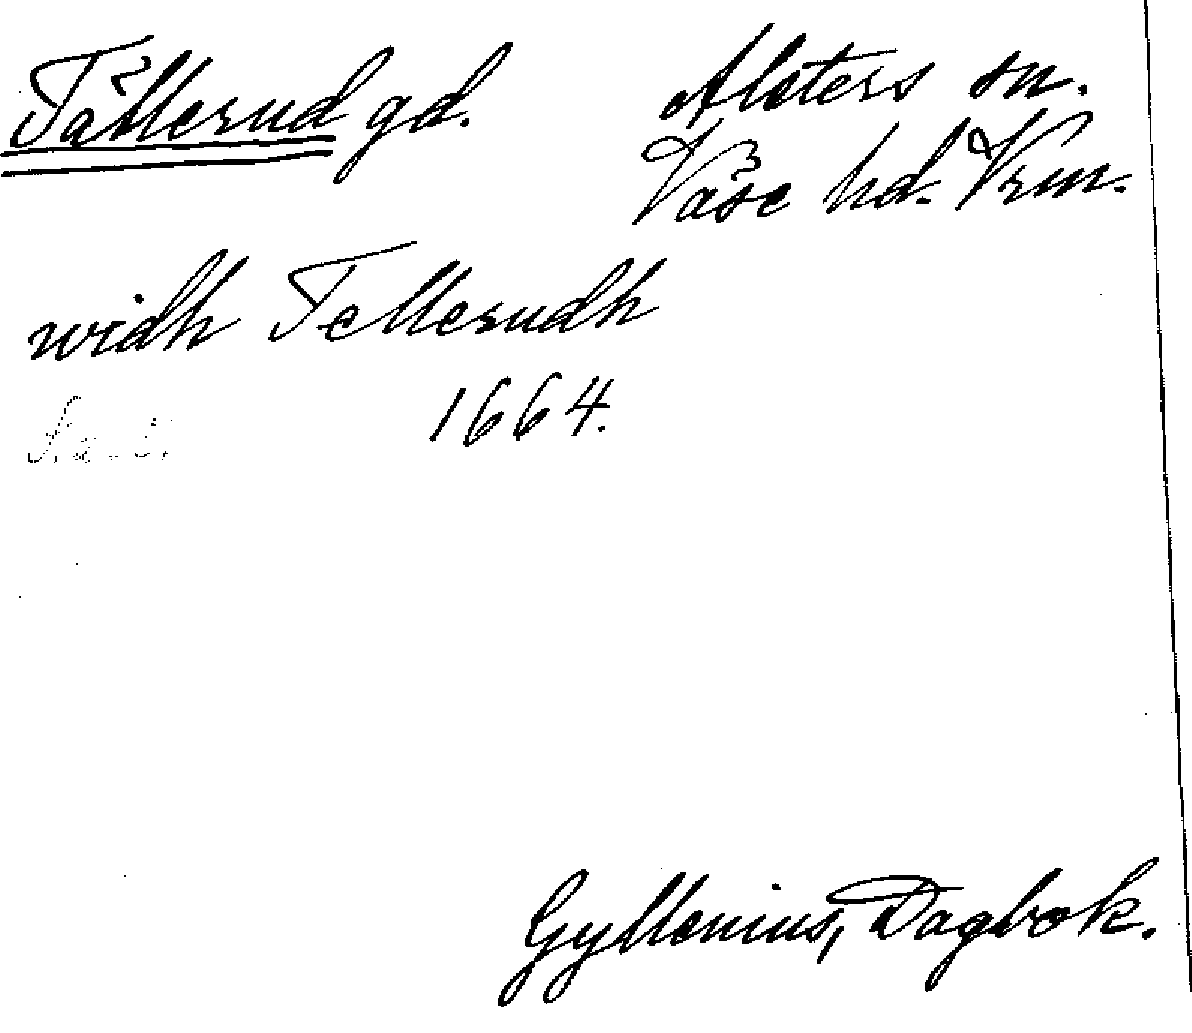 Tällerud gd.
Alsters sn.
Väse hd. Vrm.
widh Tellerudh
1664.
Gyllenius, Dagbok.